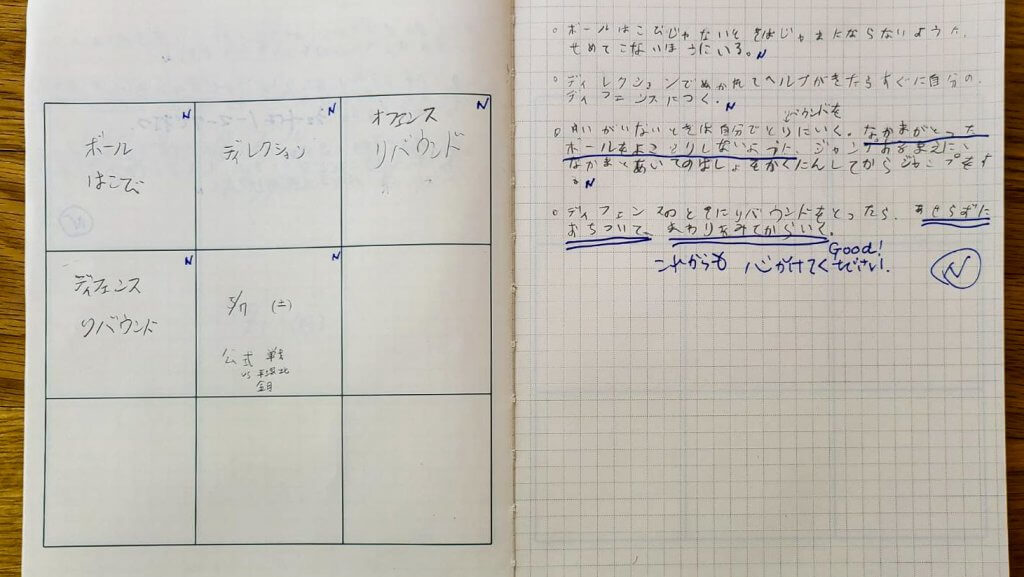 ボール
はこび
ディレクション
オフェンス
リバウンド
ディフェンス
リバウンド
5/7 (土)
公式戦
vs
。ボールはこびじゃないときはじゃまにならないように、
せめてこないほうにいる。
。ディレクションでぬかれてヘルプがきたらすぐに自分の
ディフェンスにつく。
リバウンドを
がいないときは自分でとりにいく。なかまがとった
ボールをよこどりしないように、ジャンプするまえに、
なかまとあいてのばしょをかくにんしてからジャンプをす
る
。ディフェンスのときにリバウンドをとったら、あせらずに
おちついて、まわりをみてからいく。
Good!
これからも 心がけてください!